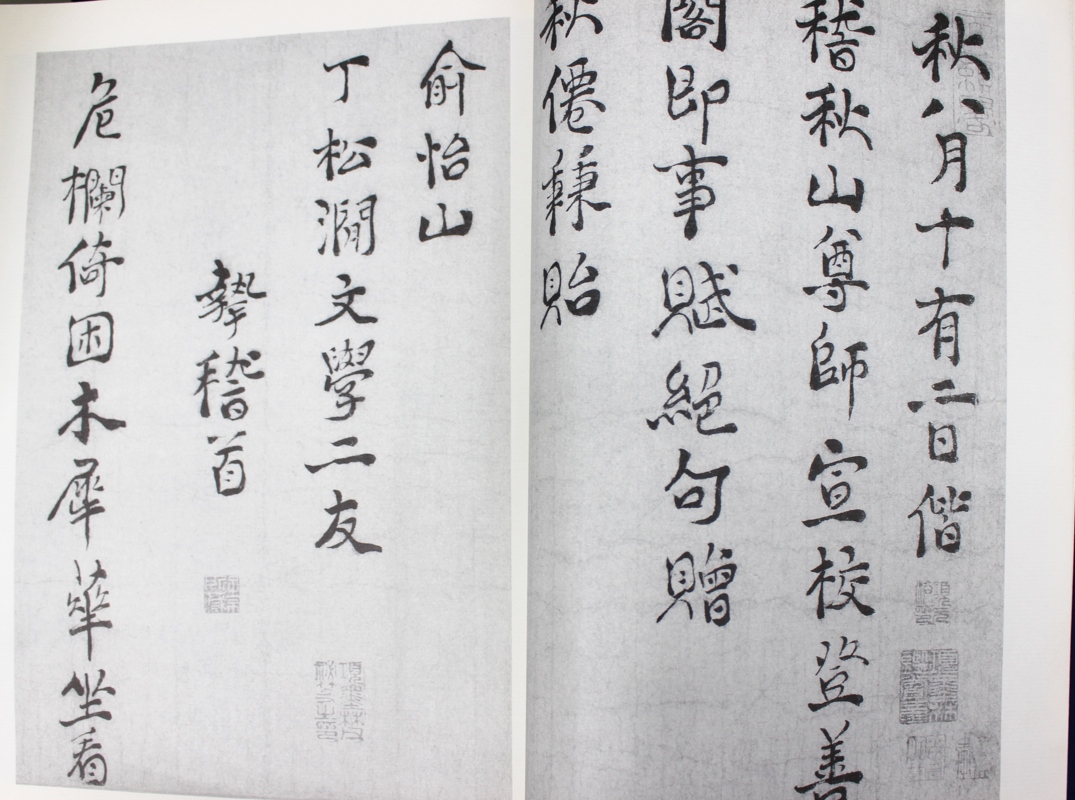 秋八月十有二日偕
稽秋山尊師宣校登善
閣即事賦絕句贈
秋僊蒹貽
俞怡山
丁松澗文學二友
摯稽首
危欄倚困木犀華坐看